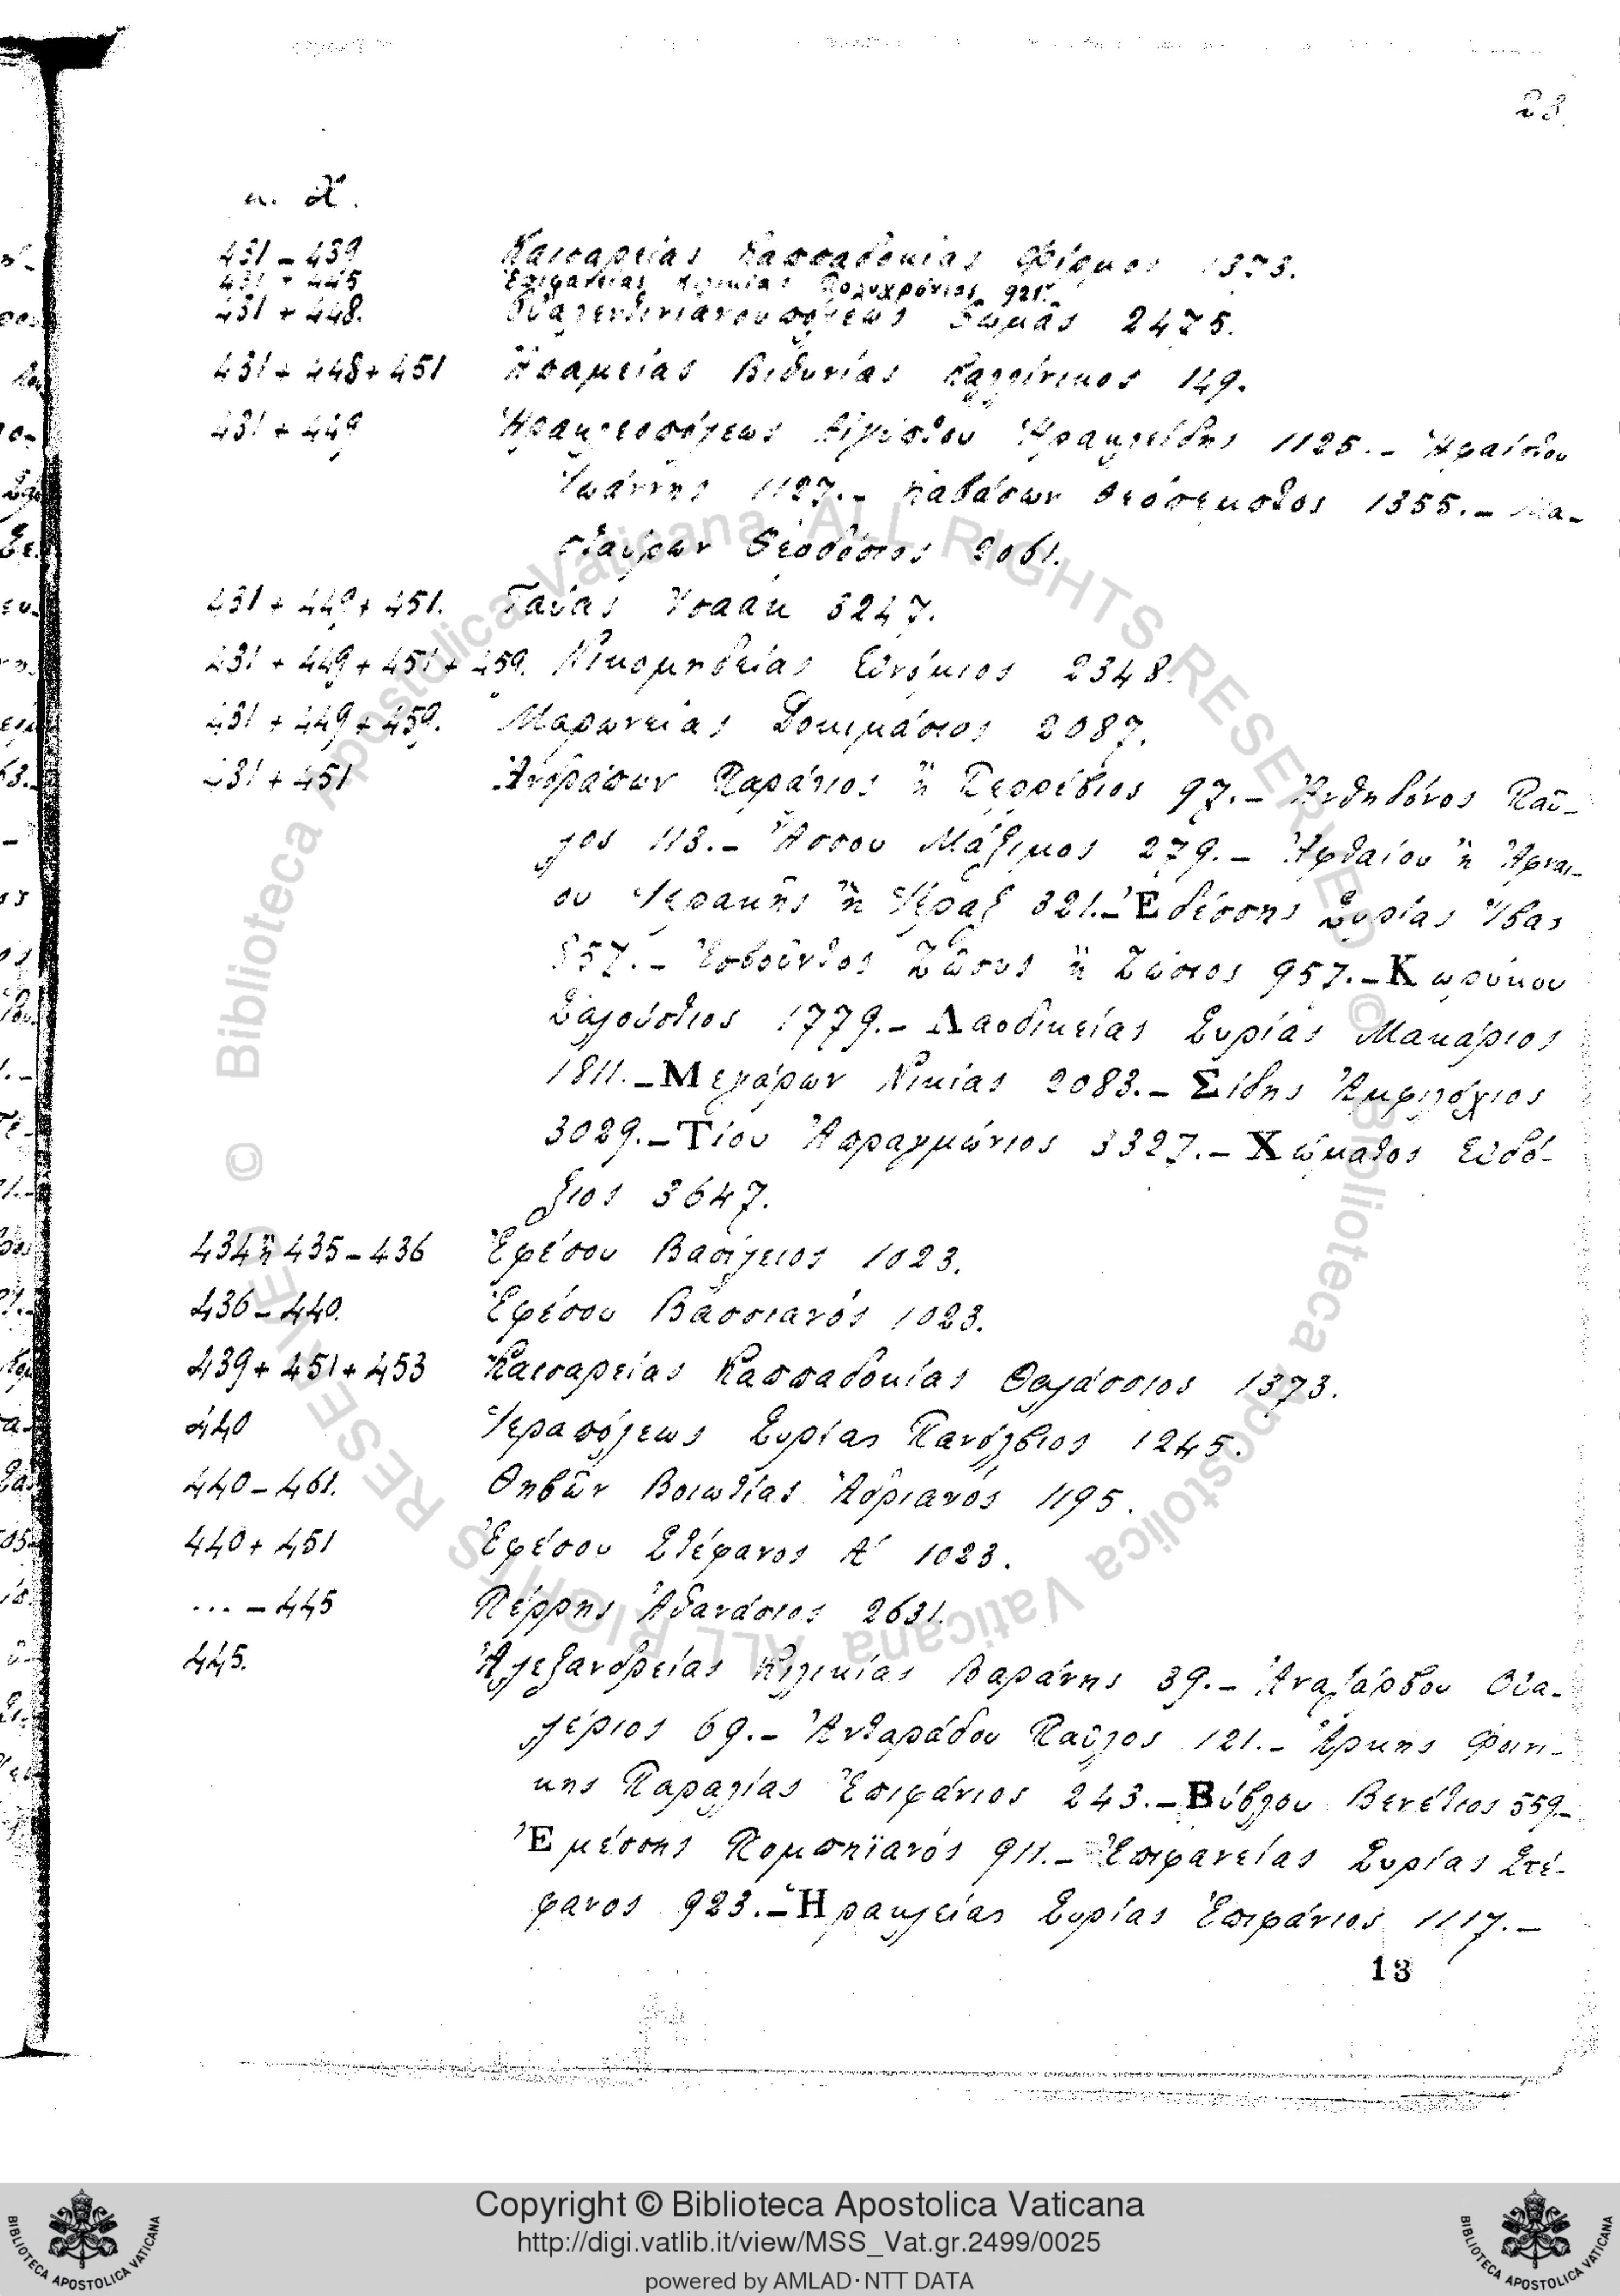 23.
μ. Χ.
431 – 439 Καισαρείας Καππαδοκίας Φίρμος 1373.
431 + 445 Ἐπιφανείας Κιλικίας Πολυχρόνιος 921.–
431 + 448. Οὐαλεντινιανουπόλεως Θωμᾶς 2475.
431 + 448 + 451 Ἀπαμείας Βιθυνίας Καλλίνικος 149.
431 + 449 Ἡρακλεοπόλεως Αἰγύπτου Ἡρακλείδης 1125.– Ἡφαίστου
Ἰωάννης 1127.– Καβάσων Θεόπεμπτος 1355.– Μα-
σταύρων Θεοδόσιος 2061.
431 + 449 + 451. Ταύας Ἰσαὰκ 3247.
431 + 449 + 451 + 459. Νικομηδείας Εὐνόμιος 2348.
431 + 449 + 459. Μαρωνείας Δοκιμάσιος 2087.
431 + 451 Ἀνδράπων Παράλιος ἢ Περρέβιος 97.– Ἀνθηδόνος Παῦ-
λος 113.– Ἄσσου Μάξιμος 279.– Ἀφθαίου ἢ Ἀφναί-
ου Ἱερακῆς ἢ Ἱέραξ 321.– Ἐδέσσης Συρίας Ἴβας
857.– Ἐσβοῦντος Ζῶσυς ἢ Ζώσιος 957.– Κωρύκου
Σαλούστιος 1779.– Λαοδικείας Συρίας Μακάριος
1811.– Μεγάρων Νικίας 2083.– Σίδης Ἀμφιλόχιος
3029.– Τίου Ἀπραγμώνιος 3327.– Χώματος Εὐδό-
ξιος 3647.
434 ἢ 435 – 436 Ἐφέσου Βασίλειος 1023.
436 – 440. Ἐφέσου Βασσιανός 1023.
439 + 451 + 453 Καισαρείας Καππαδοκίας Θαλάσσιος 1373.
440 Ἱεραπόλεως Συρίας Πανόλβιος 1245.
440 – 461. Θηβῶν Βοιωτίας Ἀδριανός 1195.
440 + 451 Ἐφέσου Στέφανος Α΄ 1023.
... – 445 Πέρρης Ἀθανάσιος 2631.
445. Ἀλεξανδρείας Κιλικίας Βαράνης 39.– Ἀναζάρβου Οὐα-
λέριος 69.– Ἀνταράδου Παῦλος 121.– Ἄρκης Φοινί-
κης Παραλίας Ἐπιφάνιος 243.– Βύβλου Βενέτιος 559.–
Ἐμέσσης Πομπηϊανός 911.– Ἐπιφανείας Συρίας Στέ-
φανος 923.– Ἡρακλείας Συρίας Ἐπιφάνιος 1117.–
13
© Biblioteca Apostolica Vaticana ALL RIGHTS RESERVED
© Biblioteca Apostolica Vaticana ALL RIGHTS RESERVED
Copyright © Biblioteca Apostolica Vaticana
http://digi.vatlib.it/view/MSS_Vat.gr.2499/0025
powered by AMLAD·NTT DATA
BIBLIOTECA APOSTOLICA VATICANA
BIBLIOTECA APOSTOLICA VATICANA